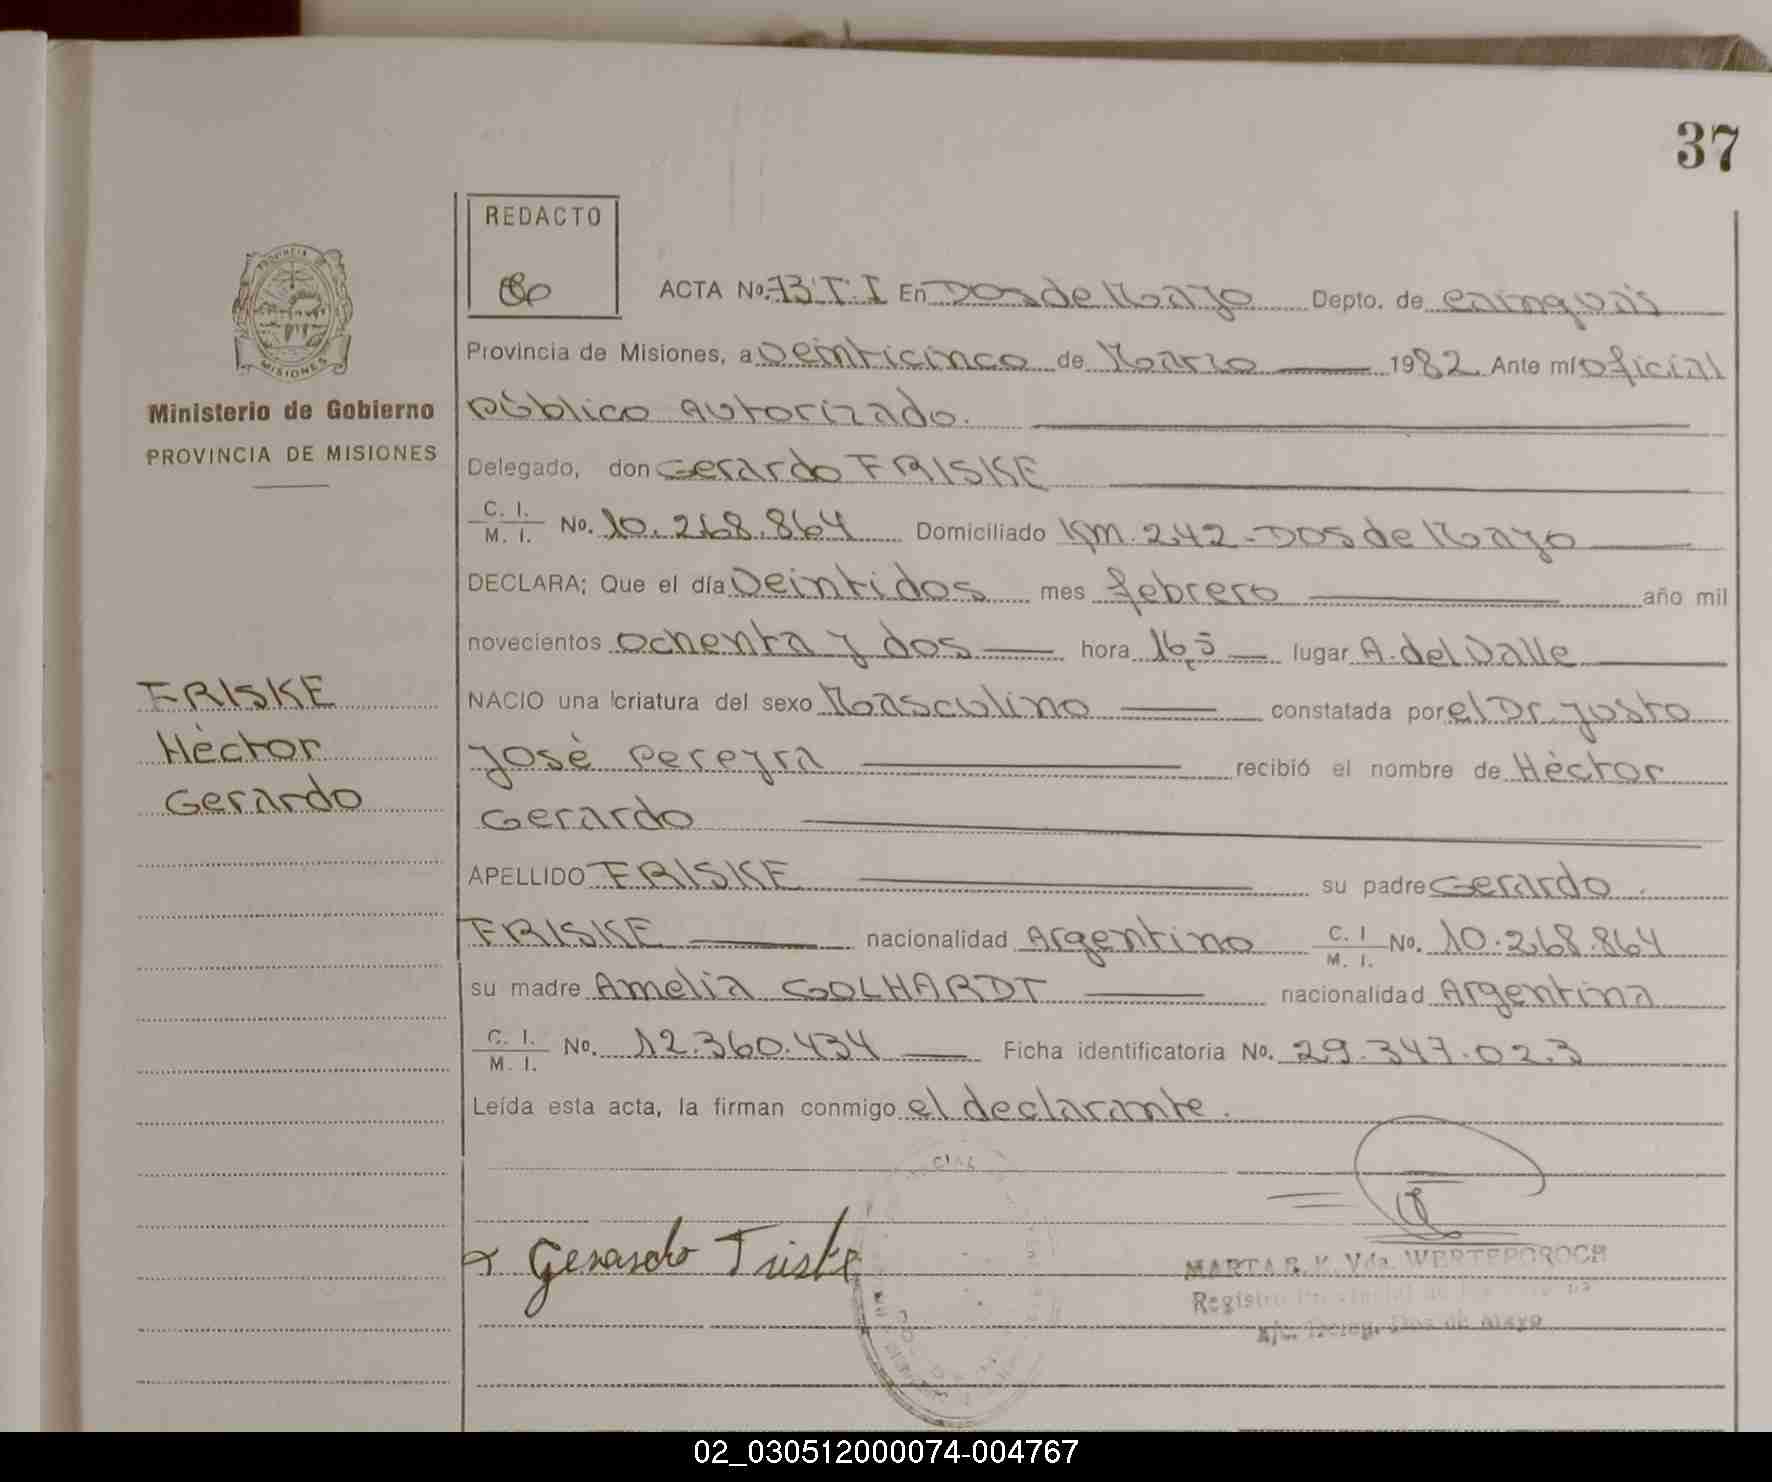 37
REDACTO
ACTA No. 73 T. I En Dos de Mayo Depto. de cainguás
PROVINCIA DE
MISIONES
Provincia de Misiones, a veinticinco de Marzo 1982 Ante mí oficial
Ministerio de Gobierno
público autorizado.
PROVINCIA DE MISIONES
Delegado, don Gerardo FRISKE
C. I. M. I. No. 10.268.864 Domiciliado Km. 242 - Dos de Mayo
DECLARA; Que el día veintidos mes febrero año mil
novecientos ochenta y dos hora 16,5 lugar A. del Valle
FRISKE
NACIO una criatura del sexo Masculino constatada por el Dr. Justo
Héctor
José Pereyra recibió el nombre de Héctor
Gerardo
Gerardo
APELLIDO FRISKE su padre Gerardo
FRISKE nacionalidad Argentino C. I M. I. No. 10.268.864
su madre Amelia GOLHARDT nacionalidad Argentina
C. I. M. I. No. 12.360.434 Ficha identificatoria No. 29.347.023
Leída esta acta, la firman conmigo el declarante.
x Gerardo Friske
MARTA R. K. Vda. WERTEPOROCH
Registro Provincial de
a/c. Deleg. Dos de Mayo
02_030512000074-004767